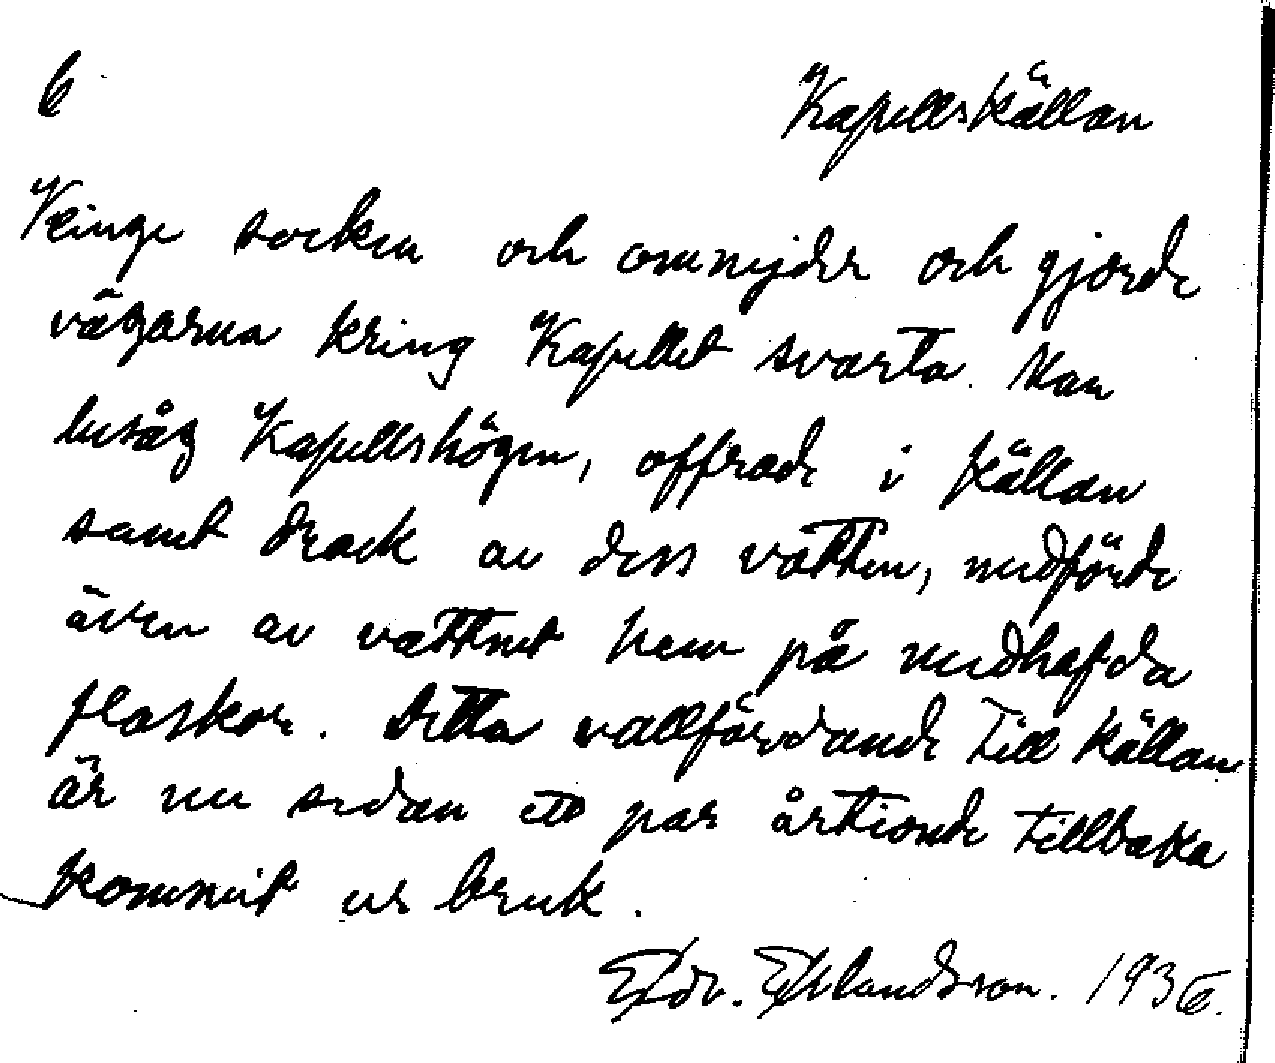 6
Kapellskällan
Veinge socken och omnejder och gjorde
vägarna kring Kapellet svarta. Man
besåg Kapellshögen, offrade i källan
samt drack av dess vatten, medförde
även av vattnet hem på medhafda
flaskor. Detta vallfärdande till källan
är nu sedan ett par årtionde tillbaka
kommit ur bruk.
Edv. Erlandsson. 1936.